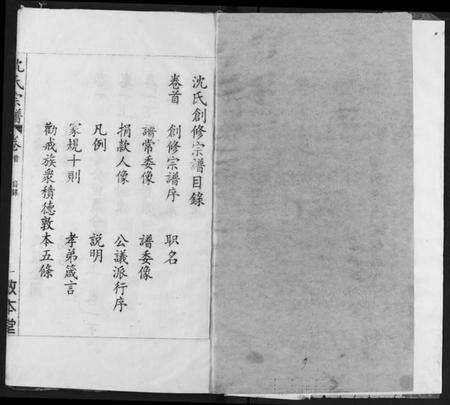 沈氏創修宗譜目錄
卷首 創修宗譜序 职名
譜常委像 譜委像
捐款人像 公議派行序
凡例 説明
冢規十則 孝弟箴言
勸戒族衆積德敦本五條
沈氏宗譜 卷首 目錄 一 敦本堂